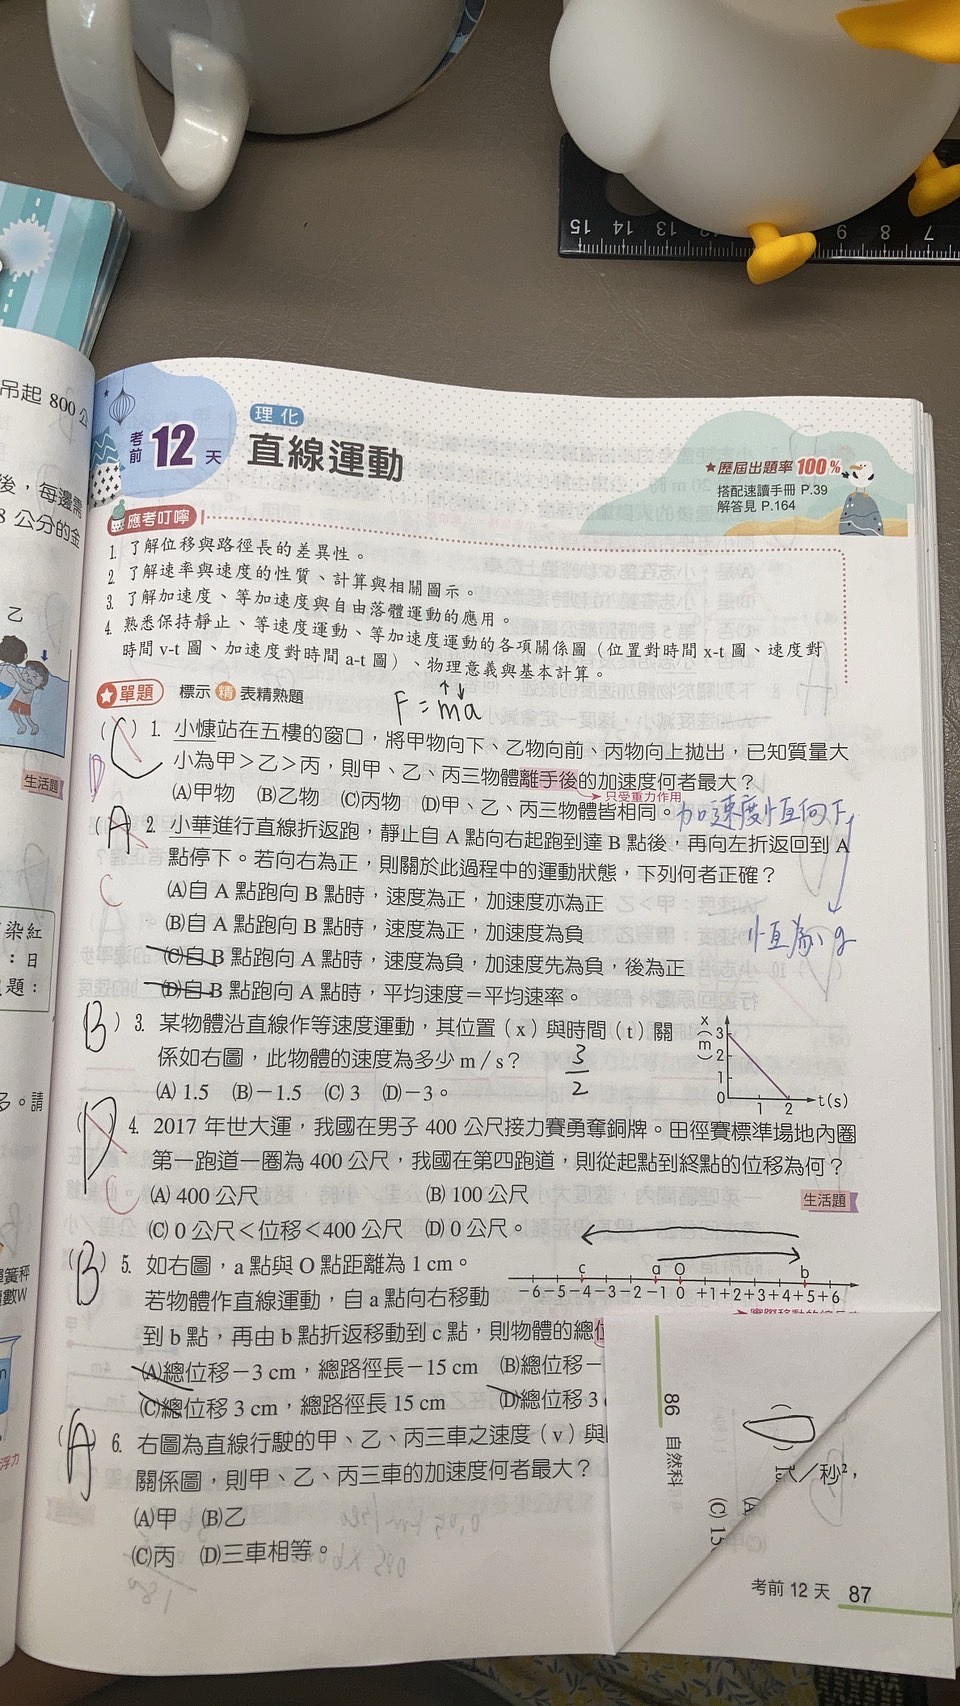 15 14 13 12 9 8 7
吊起 800 公
後，每邊需
8 公分的金
乙
生活題
染紅
：日
題：
多。請
彈簧秤
數W
浮力
考前 12 天
理化
直線運動
★歷屆出題率 100%
搭配速讀手冊 P.39
解答見 P.164
應考叮嚀
1. 了解位移與路徑長的差異性。
2. 了解速率與速度的性質、計算與相關圖示。
3. 了解加速度、等加速度與自由落體運動的應用。
4. 熟悉保持靜止、等速度運動、等加速度運動的各項關係圖（位置對時間 x-t 圖、速度對
時間 v-t 圖、加速度對時間 a-t 圖）、物理意義與基本計算。
★單題 標示 精 表精熟題
F = ma
( C ) 1. 小慷站在五樓的窗口，將甲物向下、乙物向前、丙物向上拋出，已知質量大
D
小為甲＞乙＞丙，則甲、乙、丙三物體離手後的加速度何者最大？
只受重力作用
(A)甲物 (B)乙物 (C)丙物 (D)甲、乙、丙三物體皆相同。
加速度恒向下
恒為 g
( A ) 2. 小華進行直線折返跑，靜止自 A 點向右起跑到達 B 點後，再向左折返回到 A
點停下。若向右為正，則關於此過程中的運動狀態，下列何者正確？
C
(A)自 A 點跑向 B 點時，速度為正，加速度亦為正
(B)自 A 點跑向 B 點時，速度為正，加速度為負
(C)自 B 點跑向 A 點時，速度為負，加速度先為負，後為正
(D)自 B 點跑向 A 點時，平均速度＝平均速率。
( B ) 3. 某物體沿直線作等速度運動，其位置（x）與時間（t）關
係如右圖，此物體的速度為多少 m／s？
3
2
(A) 1.5 (B)－1.5 (C) 3 (D)－3。
x
(m)
3
2
1
0 1 2 t(s)
( D 4. 2017 年世大運，我國在男子 400 公尺接力賽勇奪銅牌。田徑賽標準場地內圈
第一跑道一圈為 400 公尺，我國在第四跑道，則從起點到終點的位移為何？
C
(A) 400 公尺 (B) 100 公尺
生活題
(C) 0 公尺＜位移＜400 公尺 (D) 0 公尺。
( B ) 5. 如右圖，a 點與 O 點距離為 1 cm。
c a O b
－6－5－4－3－2－1 0 ＋1＋2＋3＋4＋5＋6
若物體作直線運動，自 a 點向右移動
到 b 點，再由 b 點折返移動到 c 點，則物體的總
(A)總位移－3 cm，總路徑長－15 cm (B)總位移－
(C)總位移 3 cm，總路徑長 15 cm (D)總位移 3
( A ) 6. 右圖為直線行駛的甲、乙、丙三車之速度（v）與
關係圖，則甲、乙、丙三車的加速度何者最大？
(A)甲 (B)乙
(C)丙 (D)三車相等。
86 自然科
／秒²，
(A
(C) 15
考前 12 天 87